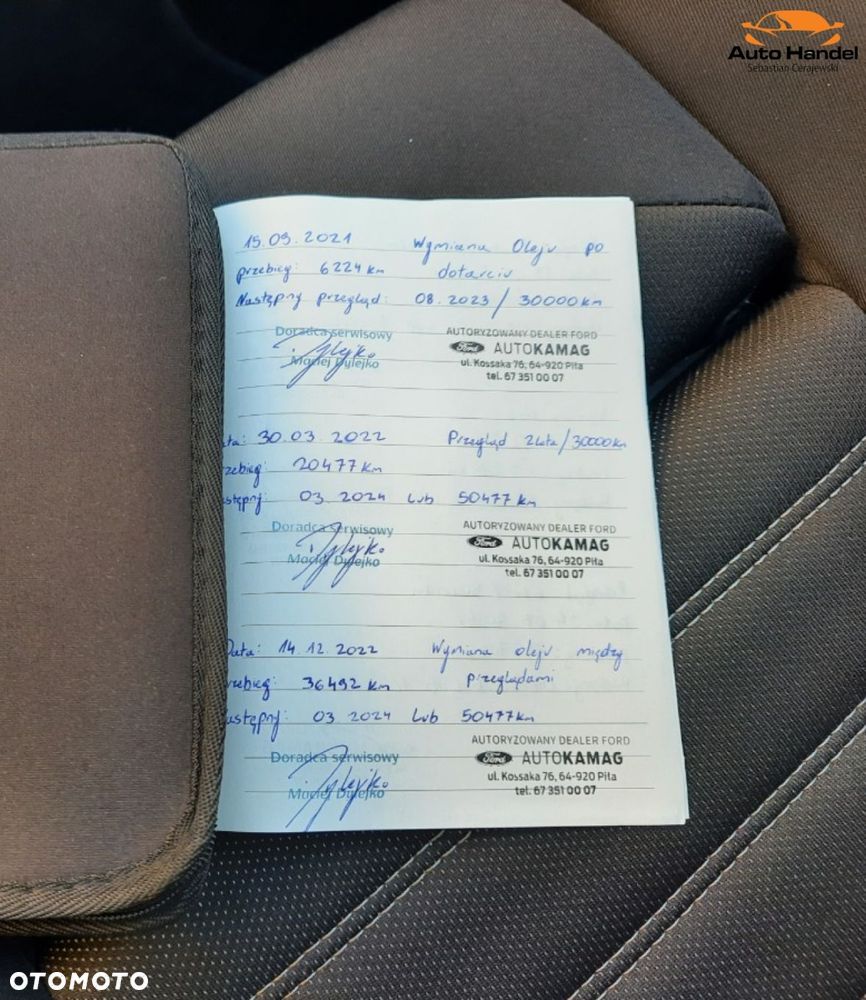 Auto Handel
Sebastian Cerajewski
15.09.2021 Wymiana Oleju po
przebieg: 6224 km dotarciu
Następny przegląd: 08.2023/30000km
Doradca serwisowy
Maciej Dylejko
AUTORYZOWANY DEALER FORD
Ford AUTOKAMAG
ul. Kossaka 76, 64-920 Piła
tel. 67 351 00 07
ata: 30.03.2022 Przegląd 2 Lata/30000km
rzebieg: 20477 km
astępny: 03.2024 Lub 50477 km
Doradca serwisowy
Maciej Dylejko
AUTORYZOWANY DEALER FORD
Ford AUTOKAMAG
ul. Kossaka 76, 64-920 Piła
tel. 67 351 00 07
Data: 14.12.2022 Wymiana oleju między
rzebieg: 36492 km przeglądami
astępny: 03.2024 Lub 50477km
Doradca serwisowy
Maciej Dylejko
AUTORYZOWANY DEALER FORD
Ford AUTOKAMAG
ul. Kossaka 76, 64-920 Piła
tel. 67 351 00 07
OTOMOTO